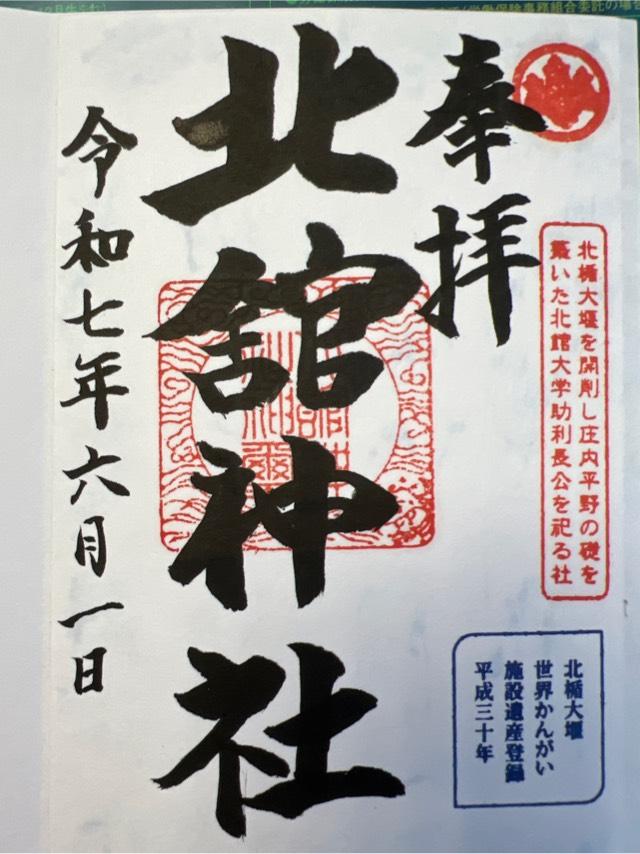 奉拝
北楯大堰を開削し庄内平野の礎を
築いた北館大学助利長公を祀る社
北楯大堰
世界かんがい
施設遺産登録
平成三十年
北舘神社
令和七年六月一日